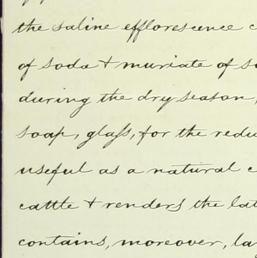 the saline efflorescence
of soda & muriate of
during the dry season,
soap, glass, for the
useful as a natural
cattle & renders the
contains, moreover,